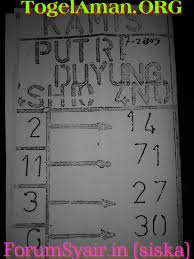 TogelAman.ORG
KAMIS
PUTRI
DUYUNG
SHIO 4ND
2 14
11 71
3 27
6 30
ForumSyair.in {siska}